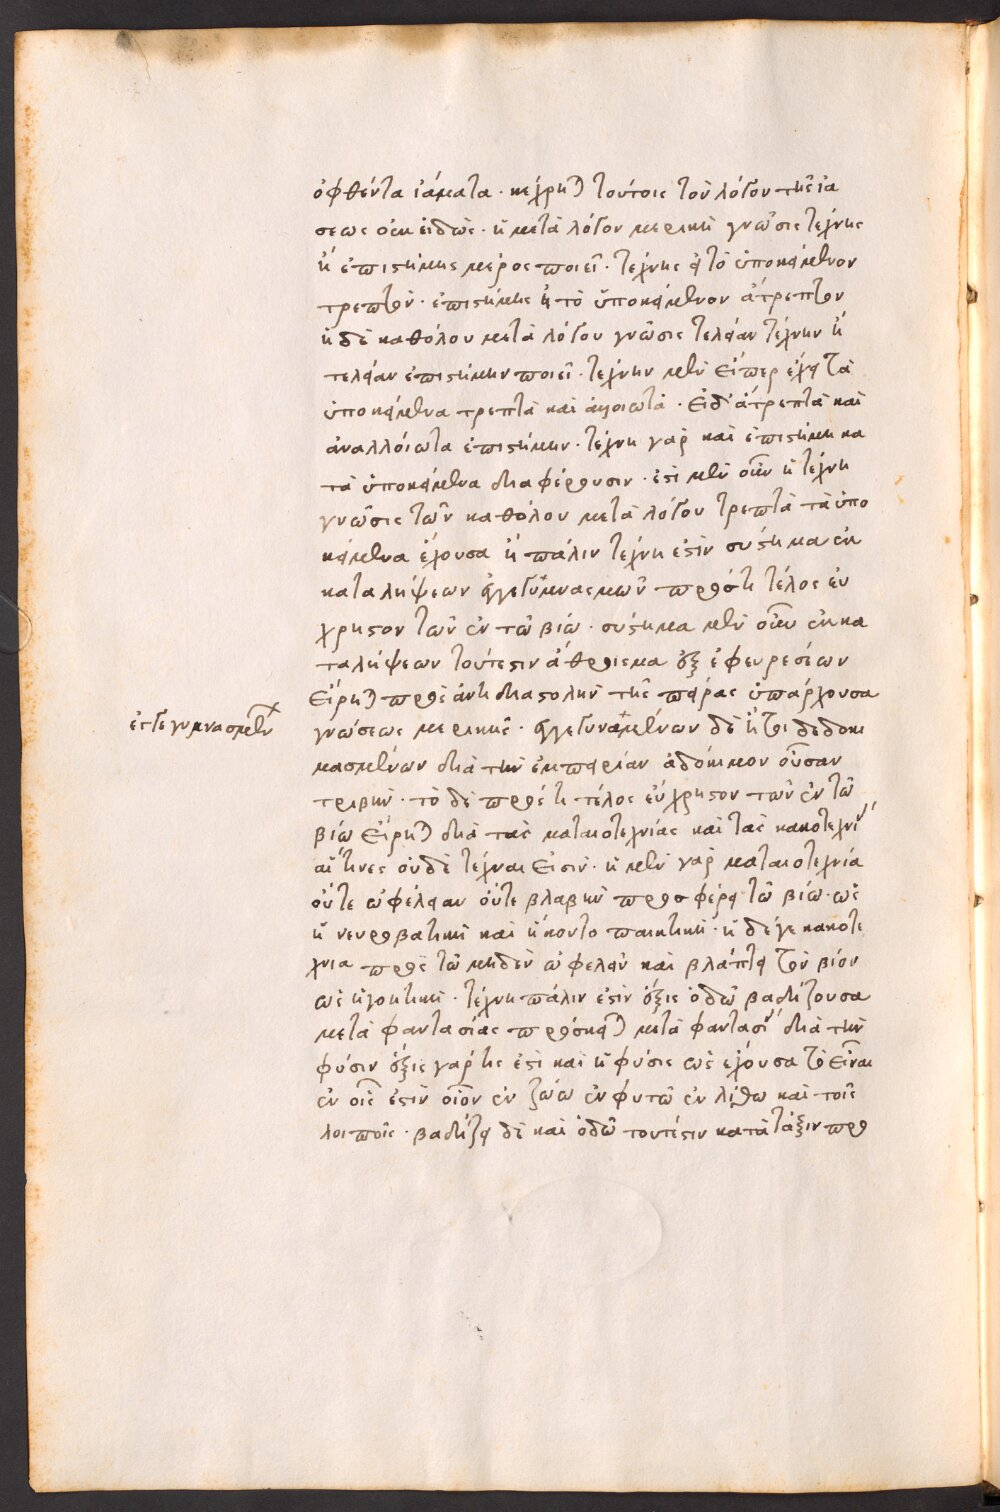 ὀφθέντα ἰάματα· κέχρηται τούτοις τὸν λόγον τῆς ἰά
σεως οὐκ εἰδώς· ἡ μετὰ λόγου μερικὴ γνῶσις τέχνης
ἢ ἐπιστήμης μέρος ποιεῖ· τέχνης εἰ τὸ ὑποκείμενον
τρεπτὸν· ἐπιστήμης εἰ τὸ ὑποκείμενον ἄτρεπτον
ἡ δὲ καθόλου μετὰ λόγου γνῶσις τελείαν τέχνην ἢ
τελείαν ἐπιστήμην ποιεῖ· τέχνην μὲν εἴπερ ἔχει τὰ
ὑποκείμενα τρεπτὰ καὶ ἀλλοιωτά· εἰ δ' ἄτρεπτα καὶ
ἀναλλοίωτα ἐπιστήμην· τέχνη γὰρ καὶ ἐπιστήμη κα
τὰ ὑποκείμενα διαφέρουσιν· ἐστὶ μὲν οὖν ἡ τέχνη
γνῶσις τῶν καθόλου μετὰ λόγου τρεπτὰ τὰ ὑπο
κείμενα ἔχουσα ἢ πάλιν τέχνη ἐστὶν σύστημα ἐκ
καταλήψεων ἐγγεγυμνασμένων πρός τι τέλος εὔ
χρηστον τῶν ἐν τῷ βίῳ· σύστημα μὲν οὖν ἐκ κα
ταλήψεων τουτέστιν ἄθροισμα ἐξ ἐφευρέσεων
εἴρηται πρὸς ἀντιδιαστολὴν τῆς πείρας ὑπάρχουσα
γνώσεως μερικῆς· ἐγγεγυναμένων δὲ ἤτοι δεδοκι
ἐγγεγυμνασμένων
μασμένων διὰ τὴν ἐμπειρίαν ἀδόκιμον οὖσαν
τριβήν· τὸ δὲ πρός τι τέλος εὔχρηστον τῶν ἐν τῷ
βίῳ εἴρηται διὰ τὰς ματαιοτεχνίας καὶ τὰς κακοτεχνίας
αἵτινες οὐδὲ τέχναι εἰσίν· ἡ μὲν γὰρ ματαιοτεχνία
οὔτε ὠφέλειαν οὔτε βλαβὴν προσφέρει τῷ βίῳ· ὡς
ἡ νευροβατικὴ καὶ ἡ κοντοπαικτική· ἡ δέ γε κακοτε
χνια πρὸς τῷ μηδὲν ὠφελεῖν καὶ βλάπτει τὸν βίον
ὡς ἡ γοητική· τέχνη πάλιν ἐστὶν ἕξις ὁδῷ βαδίζουσα
μετὰ φαντασίας πρόσκειται μετὰ φαντασίας διὰ τὴν
φύσιν ἕξις γάρ τις ἐστὶ καὶ ἡ φύσις ὡς ἔχουσα τὸ εἶναι
ἐν οἷς ἐστὶν οἷον ἐν ζώῳ ἐν φυτῷ ἐν λίθῳ καὶ τοῖς
λοιποῖς· βαδίζει δὲ καὶ ὁδῷ τουτέστιν κατὰ τάξιν προ